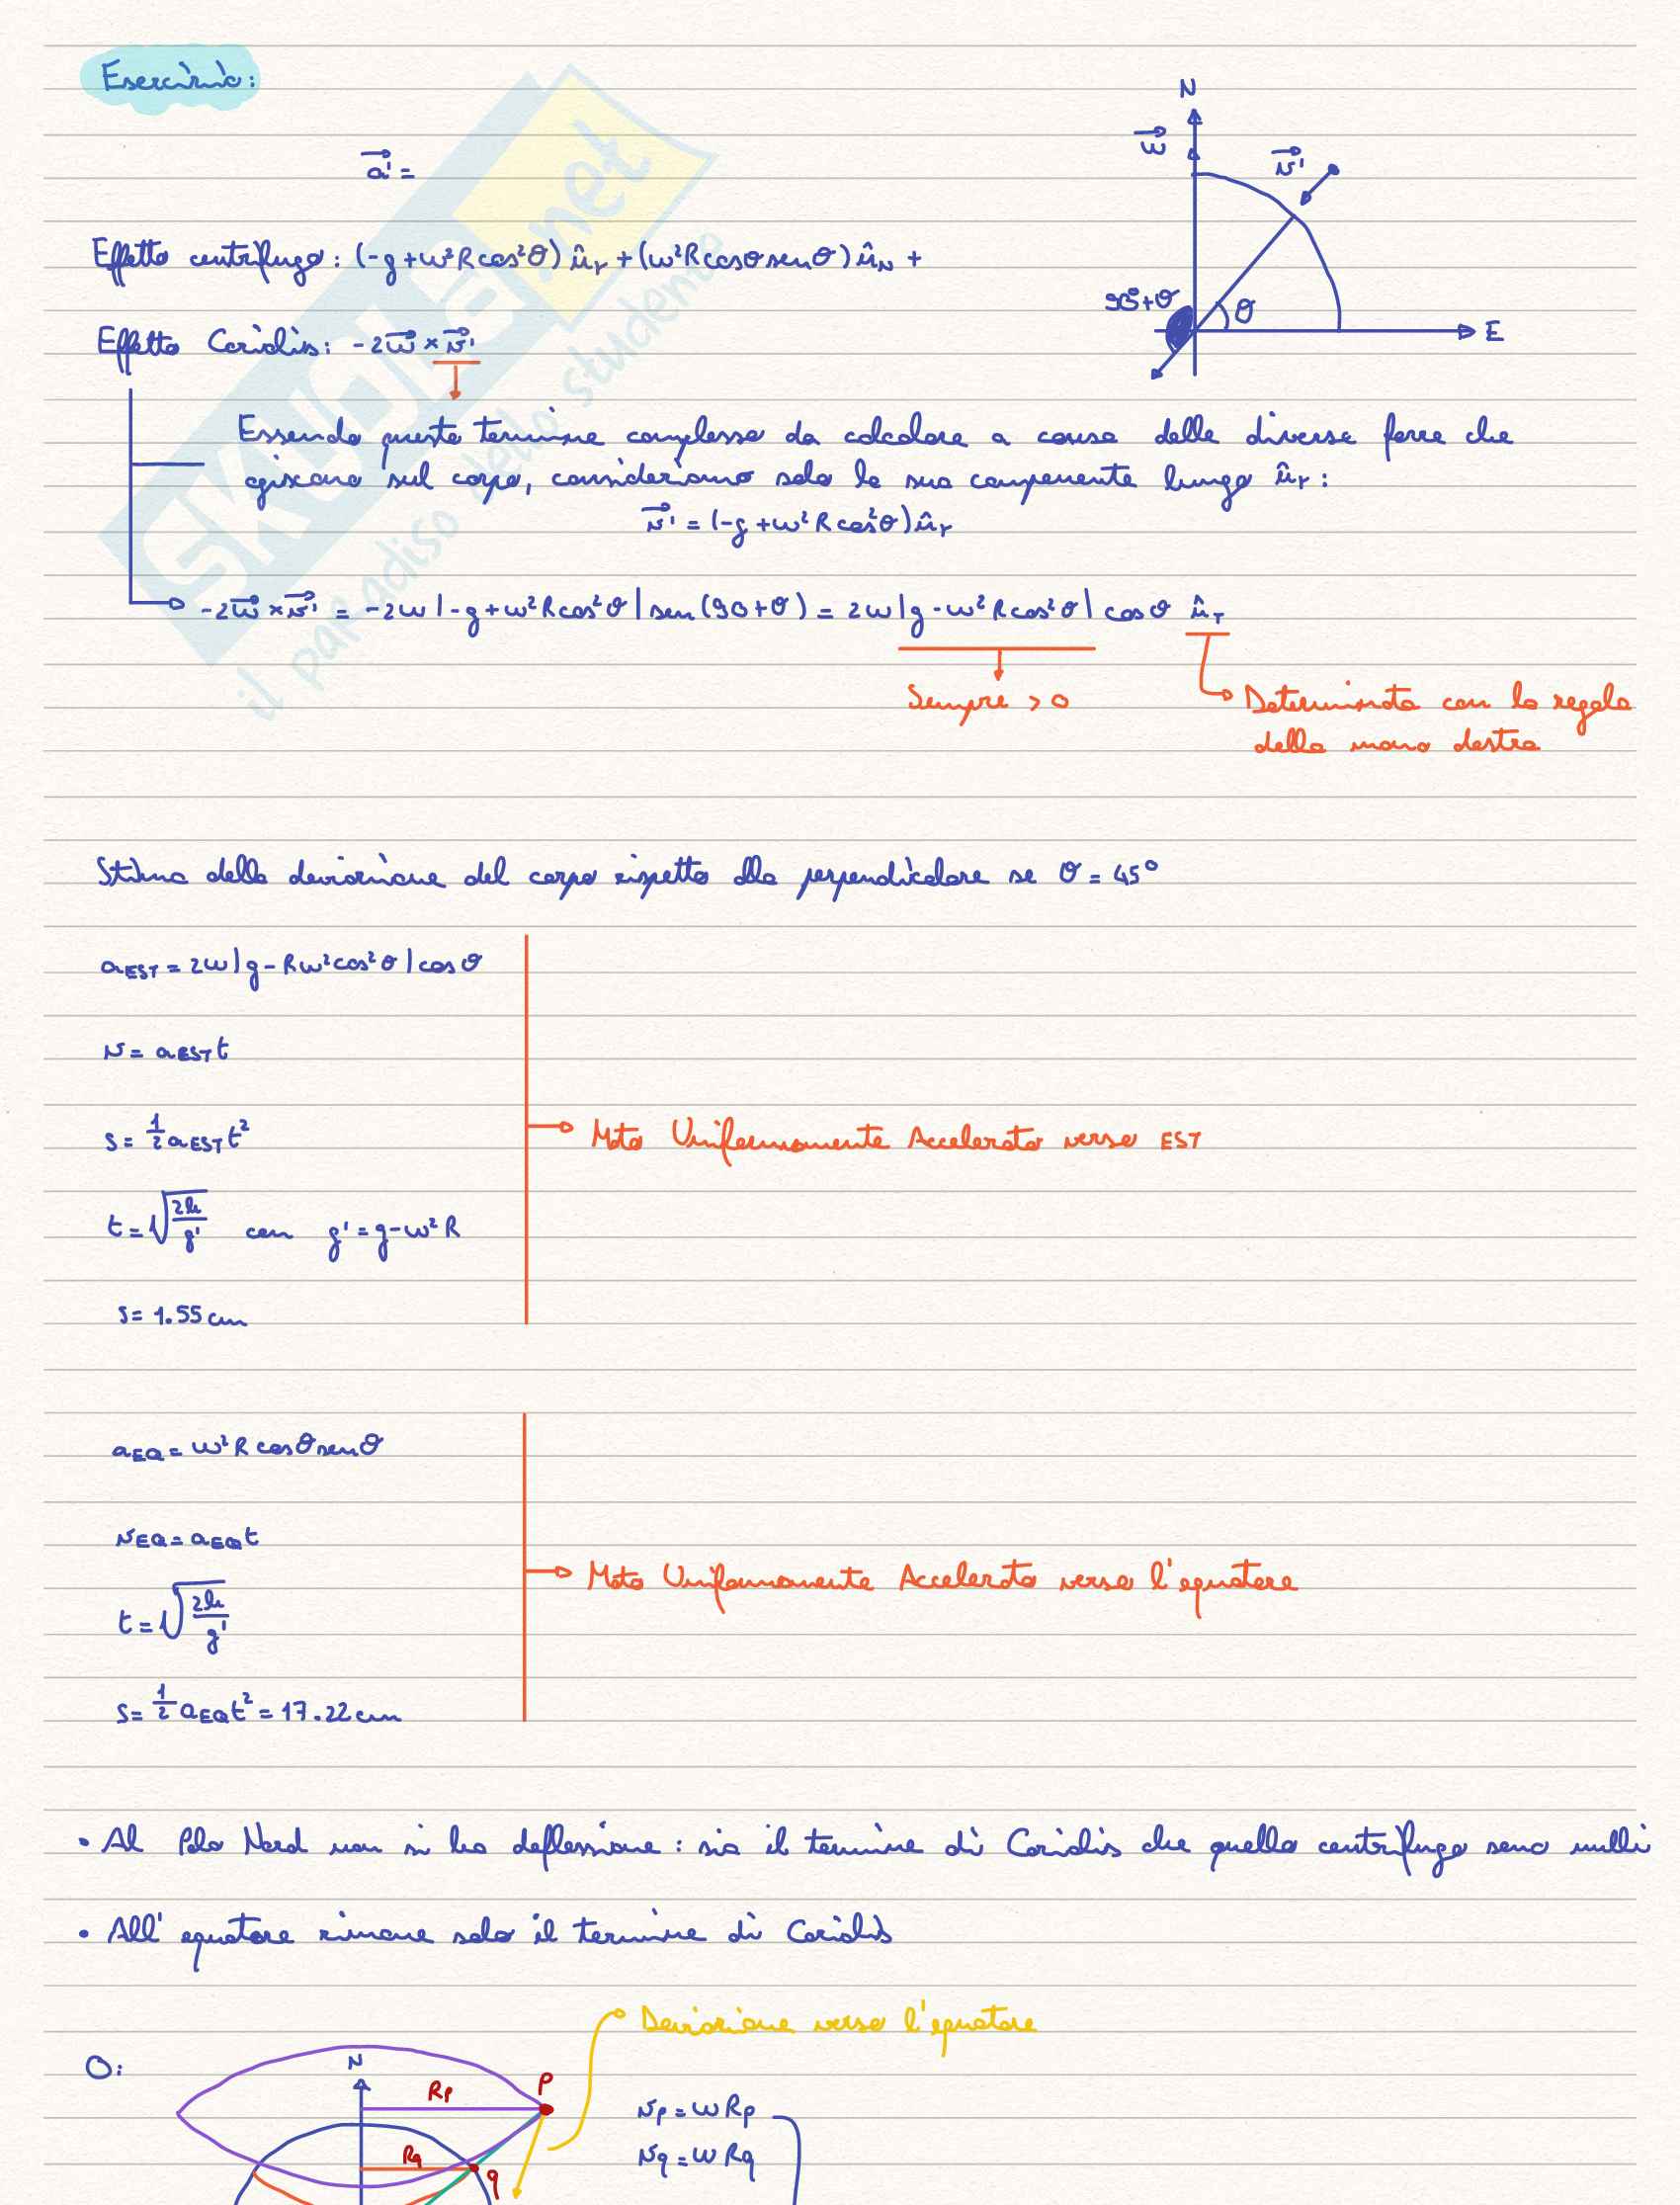 Esercizio:
N
ω⃗
v⃗'
a⃗' =
Effetto centrifugo: (-g+ω²Rcos²θ) û_r + (ω²Rcosθsenθ) û_N +
90°+θ
θ
E
Effetto Coriolis: -2ω⃗ × v⃗'
Essendo questo termine complesso da calcolare a causa delle diverse forze che
agiscono sul corpo, consideriamo solo la sua componente lungo û_r :
v⃗' = (-g+ω²Rcos²θ) û_r
-2ω⃗ × v⃗' = -2ω |-g+ω²Rcos²θ| sen(90+θ) = 2ω |g-ω²Rcos²θ| cosθ û_T
Sempre > 0
Determinata con la regola
della mano destra
Stima della deviazione del corpo rispetto alla perpendicolare se θ = 45°
a_EST = 2ω |g-Rω²cos²θ| cosθ
v = a_EST t
s = 1/2 a_EST t²
Moto Uniformemente Accelerato verso EST
t = √(2h/g') con g' = g-ω²R
s = 1.55 cm
a_EQ = ω²R cosθsenθ
v_EQ = a_EQ t
Moto Uniformemente Accelerato verso l'equatore
t = √(2h/g')
s = 1/2 a_EQ t² = 17.22 cm
• Al Polo Nord non si ha deflessione : sia il termine di Coriolis che quello centrifugo sono nulli
• All' equatore rimane solo il termine di Coriolis
Deviazione verso l'equatore
O:
N
R_p
P
v_p = ωR_p
R_q
q
v_q = ωR_q
SKUOLA.net
il paradiso dello studente